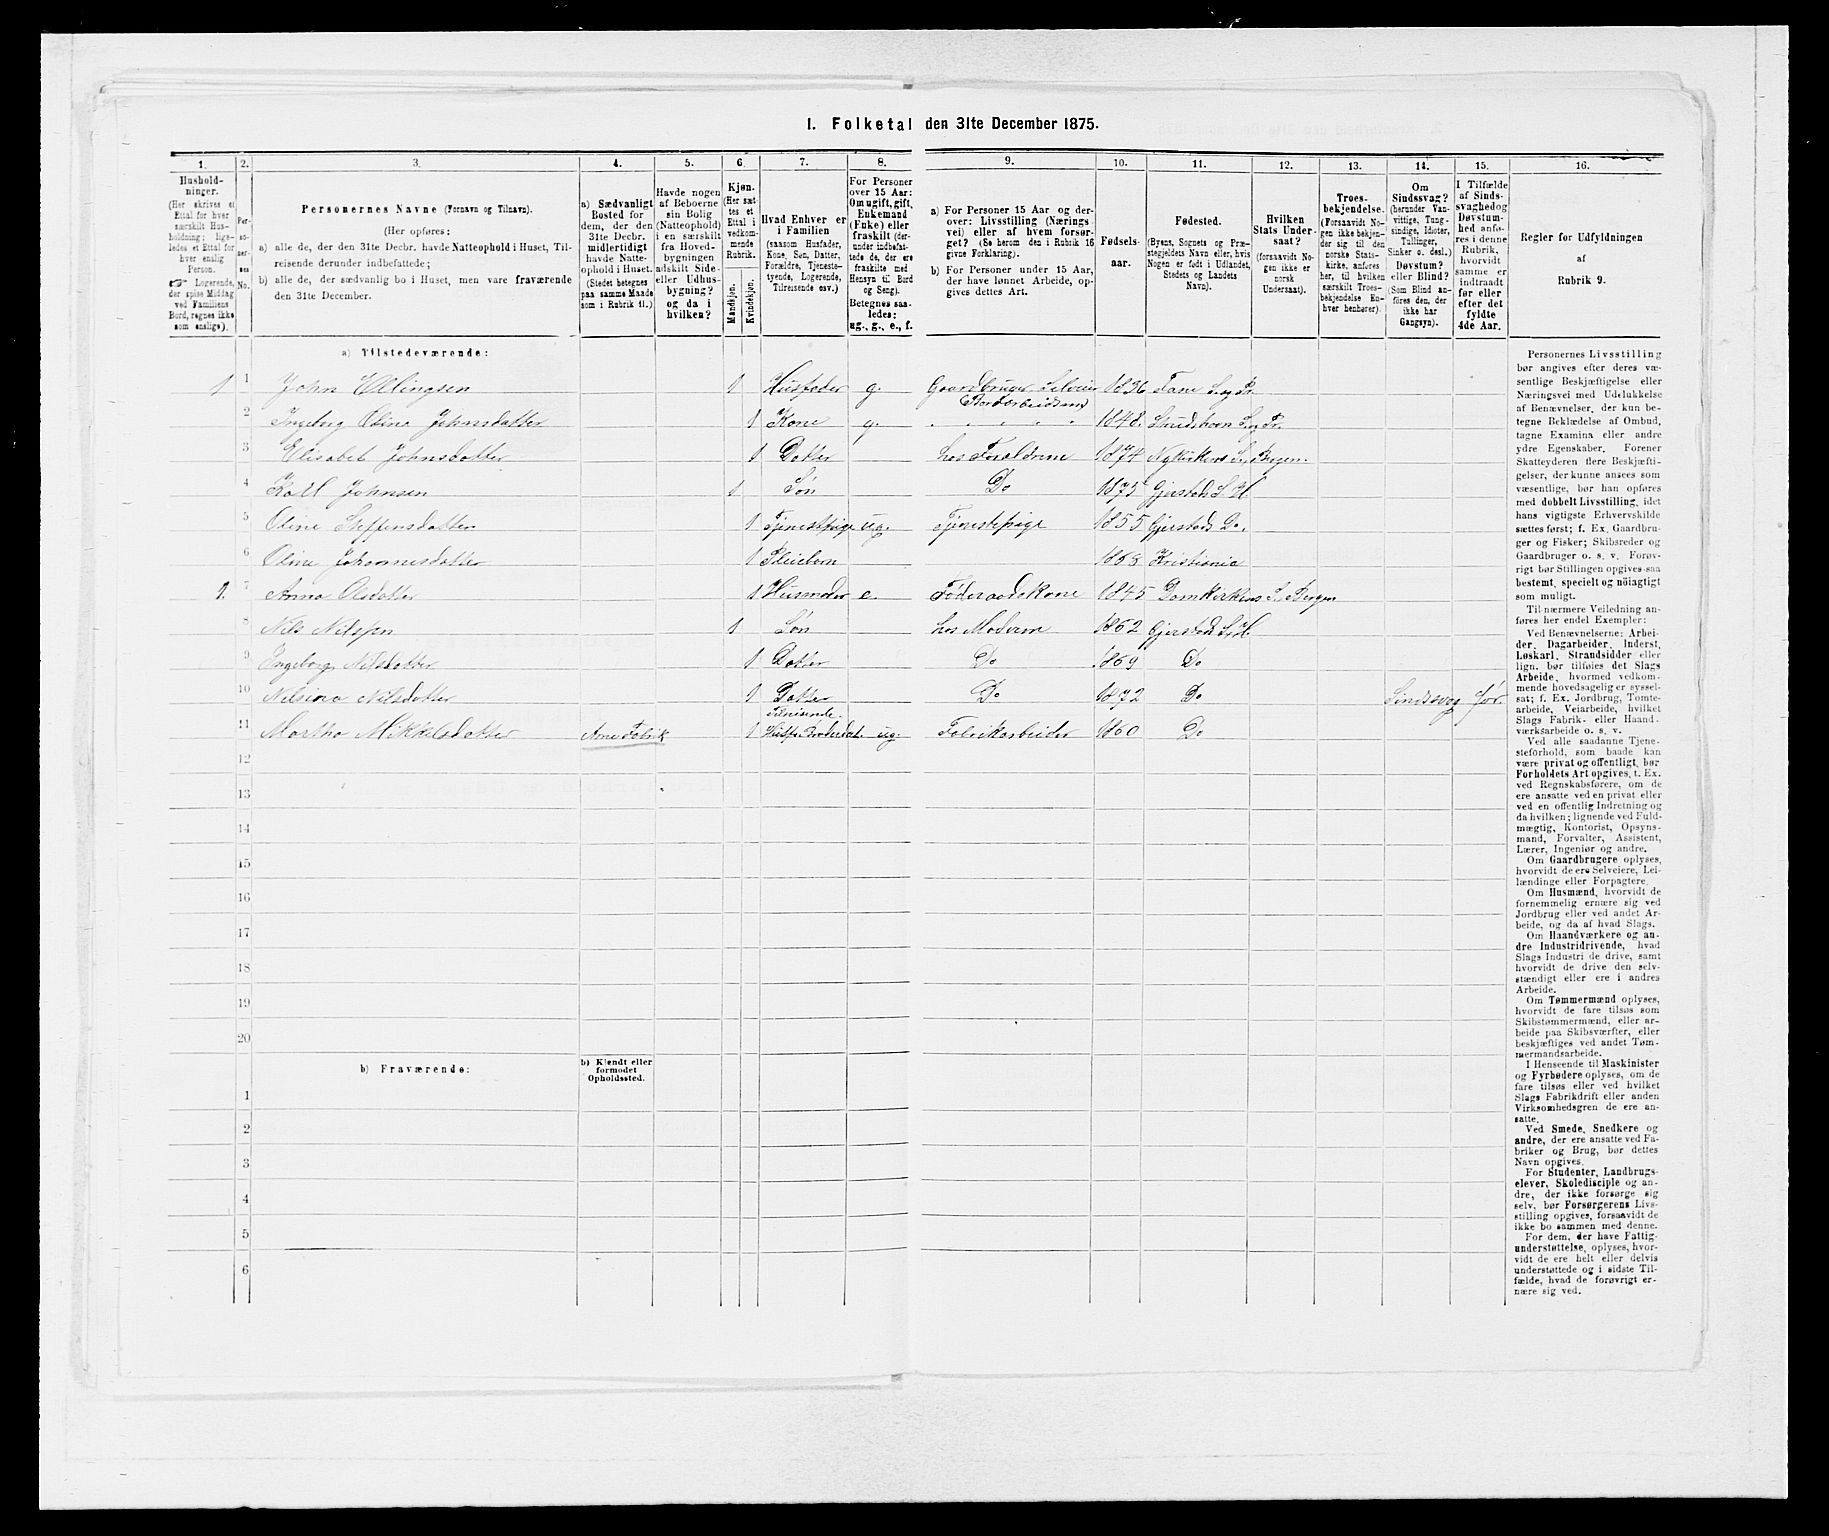 I. Folketal den 31te December 1875.
1. 2. 3. 4. 5. 6. 7. 8. 9. 10. 11. 12. 13. 14. 15. 16.
Hushold-
ninger.
(Her skrives et
Ettal for hver
særskilt Hus-
holdning; lige-
ledes et Ettal for
hver enslig
Person.
☞ Logerende,
der spise Middag
ved Familiens
Bord, regnes ikke
som enslige).
Per-
so-
ner-
nes
No.
Personernes Navne (Fornavn og Tilnavn).
(Her opføres:
a) alle de, der den 31te Decbr. havde Natteophold i Huset, Til-
reisende derunder indbefattede;
b) alle de, der sædvanlig bo i Huset, men vare fraværende
den 31te December.
a) Sædvanligt
Bosted for
dem, der den
31te Decbr.
midlertidigt
havde Natte-
ophold i Huset.
(Stedet betegnes
paa samme Maade
som i Rubrik 11.)
Havde nogen
af Beboerne
sin Bolig
(Natteophold)
i en særskilt
fra Hoved-
bygningen
adskilt Side-
eller Udhus-
bygning?
og da i
hvilken?
Kjøn.
(Her sæt-
tes et
Ettal i
vedkom-
mende
Rubrik.
Mandkjøn.
Kvindekjøn.
Hvad Enhver er
i Familien
(saasom Husfader,
Kone, Søn, Datter,
Forældre, Tjeneste-
tyende, Logerende,
Tilreisende osv.)
For Personer
over 15 Aar:
Om ugift, gift,
Enkemand
(Enke) eller
fraskilt (der-
under indbefat-
tede de, der ere
fraskilte med
Hensyn til Bord
og Seng).
Betegnes saa-
ledes:
ug., g., e., f.
a) For Personer 15 Aar og der-
over: Livsstilling (Nærings-
vei) eller af hvem forsør-
get? (Se herom den i Rubrik 16
givne Forklaring).
b) For Personer under 15 Aar,
der have lønnet Arbeide, op-
gives dettes Art.
Fødsels-
aar.
Fødested.
(Byens, Sognets og Præ-
stegjeldets Navn eller, hvis
Nogen er født i Udlandet,
Stedets og Landets
Navn).
Hvilken
Stats Under-
saat?
(forsaavidt No-
gen ikke er
norsk
Undersaat).
Troes-
bekjendelse.
(Forsaavidt No-
gen ikke bekjen-
der sig til den
norske Stats-
kirke, anføres
her, til hvilken
særskilt Troes-
bekjendelse En-
hver henhører).
Om
Sindssvag?
(herunder Van-
vittige, Tung-
sindige, Idioter,
Tullinger,
Sinker o. desl.)
Døvstum?
eller Blind?
(Som Blind an-
føres den, der
ikke har
Gangsyn).
I Tilfælde
af Sinds-
svaghed og
Døvstum-
hed anfø-
res i denne
Rubrik,
hvorvidt
samme er
indtraadt
før eller
efter det
fyldte
4de Aar.
Regler for Udfyldningen
af
Rubrik 9.
a) Tilstedeværende:
1 1 John Ellingsen 1 Husfader g. Gaardbruger Selveier 1836 Fane S. og Pr.
Jordarbeidsmd
2 Ingeborg Olina Johnsdatter 1 Kone g. " " " " " 1848. Strudshavn S. og Pr.
3 Elisabet Johnsdatter 1 Datter hos Forældrene 1874 Nykirkens S. Bergen.
4 Karl Johnsen 1 Søn Do 1875 Gjerstad S. H
5 Oline Steffensdatter 1 Tjenestpige ug. Tjenestepige 1855 Gjerstads Do.
6 Oline Johannesdatter 1 Pleiebarn 1868 Kristiania
1. 7 Anna Olsdatter 1 Husmoder e. Føderaadskone 1845 Domkirkens S. Bergen
8 Nils Nilssen 1 Søn hos Moderen 1862 Gjerstad S. H
9 Ingeborg Nilsdatter 1 Datter Do 1869 Do
10 Nilsina Nilsdatter 1 Datter Do 1872 Do Sindssvag før.
Tilreisende
11 Martha Mikkelsdatter Arne Fabrik 1 Husf. Broderdat. ug. Fabrikarbeider 1860 Do
12
13
14
15
16
17
18
19
20
b) Fraværende:
b) Kjendt eller
formodet
Opholdssted.
1
2
3
4
5
6
Personernes Livsstilling
bør angives efter deres væ-
sentlige Beskjæftigelse eller
Næringsvei med Udelukkelse
af Benævnelser, der kun be-
tegne Beklædelse af Ombud,
tagne Examina eller andre
ydre Egenskaber. Forener
Skatteyderen flere Beskjæfti-
gelser, der kunne ansees som
væsentlige, bør han opføres
med dobbelt Livsstilling, idet
hans vigtigste Erhvervskilde
sættes først; f. Ex. Gaardbru-
ger og Fisker; Skibsreder og
Gaardbruger o. s. v. Forøv-
rigt bør Stillingen opgives saa
bestemt, specielt og nøiagtigt
som muligt.
Til nærmere Veiledning an-
føres her endel Exempler:
Ved Benævnelserne: Arbei-
der, Dagarbeider, Inderst,
Løskarl, Strandsidder eller
lign. bør tilføies det Slags
Arbeide, hvormed vedkom-
mende hovedsagelig er syssel-
sat; f. Ex. Jordbrug, Tomte-
arbeide, Veiarbeide, hvilket
Slags Fabrik- eller Haand-
værksarbeide o. s. v.
Ved alle saadanne Tjene-
steforhold, som baade kan
være privat og offentligt, bør
Forholdets Art opgives, t. Ex.
ved Regnskabsførere, om de
ere ansatte ved en privat eller
ved en offentlig Indretning og
da hvilken; lignende ved Fuld-
mægtig, Kontorist, Opsyns-
mand, Forvalter, Assistent,
Lærer, Ingeniør og andre.
Om Gaardbrugere oplyses,
hvorvidt de ere Selveiere, Lei-
lændinge eller Forpagtere.
Om Husmænd, hvorvidt de
fornemmelig ernære sig ved
Jordbrug eller ved andet Ar-
beide, og da af hvad Slags.
Om Haandværkere og an-
dre Industridrivende, hvad
Slags Industri de drive, samt
hvorvidt de drive den selv-
stændigt eller ere i andres
Arbeide.
Om Tømmermænd oplyses,
hvorvidt de fare tilsøs som
Skibstømmermænd, eller ar-
beide paa Skibsværfter, eller
beskjæftiges ved andet Tøm-
mermandsarbeide.
I Henseende til Maskinister
og Fyrbødere oplyses, om de
fare tilsøs eller ved hvilket
Slags Fabrikdrift eller anden
Virksomhedsgren de ere an-
satte.
Ved Smede, Snedkere og
andre, der ere ansatte ved Fa-
briker og Brug, bør dettes
Navn opgives.
For Studenter, Landbrugs-
elever, Skoledisciple og an-
dre, der ikke forsørge sig
selv, bør Forsørgerens Livs-
stilling opgives, forsaavidt de
ikke bo sammen med denne.
For dem, der have Fattig-
understøttelse, oplyses, hvor-
vidt de ere helt eller delvis
understøttede og i sidste Til-
fælde, hvad de forøvrigt er-
nære sig ved.